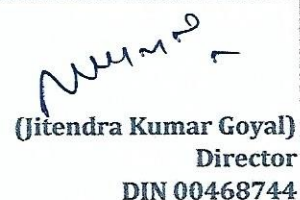 (Jitendra Kumar Goyal)
Director
DIN 00468744